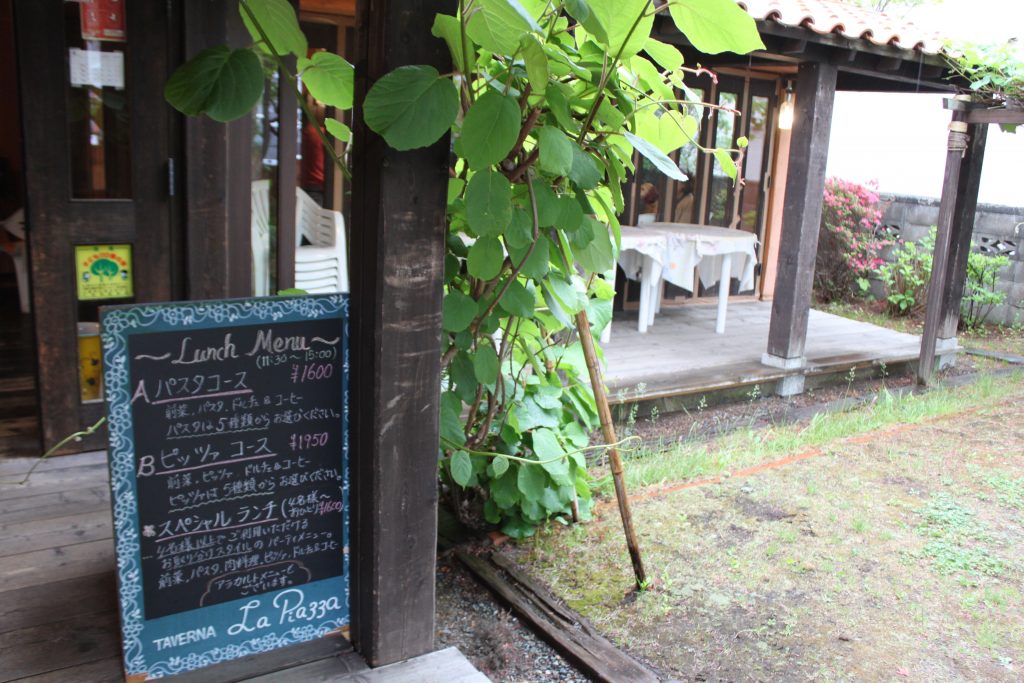 ～Lunch Menu～
(11:30～15:00)
A パスタコース ¥1600
前菜、パスタ、ドルチェ&コーヒー
パスタは5種類からお選びください。
B ピッツァ コース ¥1950
前菜、ピッツァ、ドルチェ&コーヒー
ピッツァは5種類からお選びください。
スペシャルランチ(4名様～ おひとり¥1600)
4名様以上でご利用いただける
お取り分けスタイルのパーティメニュー。
前菜、パスタ、肉料理、ピッツァ、ドルチェ&コーヒー
アラカルトメニューも
ございます。
TAVERNA La Piazza